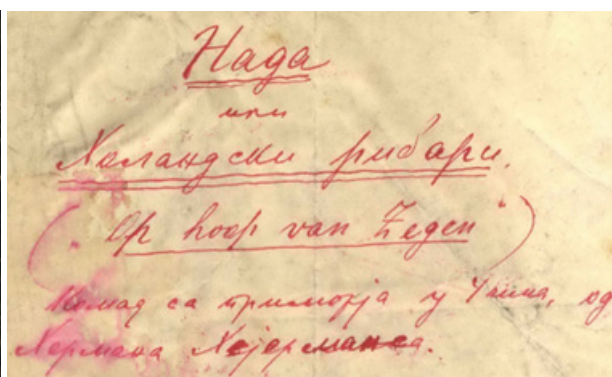 Нада
или
Холандски рибари.
(„Op hoop van Zegen“)
Комад са приморја у 4 чина, од
Хермана Хејерманса.